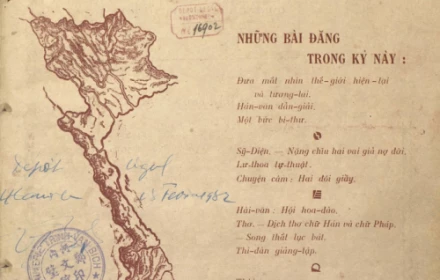 No 16902
NHỮNG BÀI ĐĂNG
TRONG KỲ NÀY :
Đưa mắt nhìn thế-giới hiện-tại
và tương-lai.
Hán-văn dẫn-giải.
Một bức bí-thư.
Sỹ-Diện. — Nặng chĩu hai vai giả nợ đời.
Lư-thoa tự-thuật.
Chuyện câm : Hai đôi giầy.
Hái-văn : Hội hoa-đào.
Thơ. — Dịch thơ chữ Hán và chữ Pháp.
— Song thất lục bát.
Thi-đàn giảng-tập.
Dépôt légal